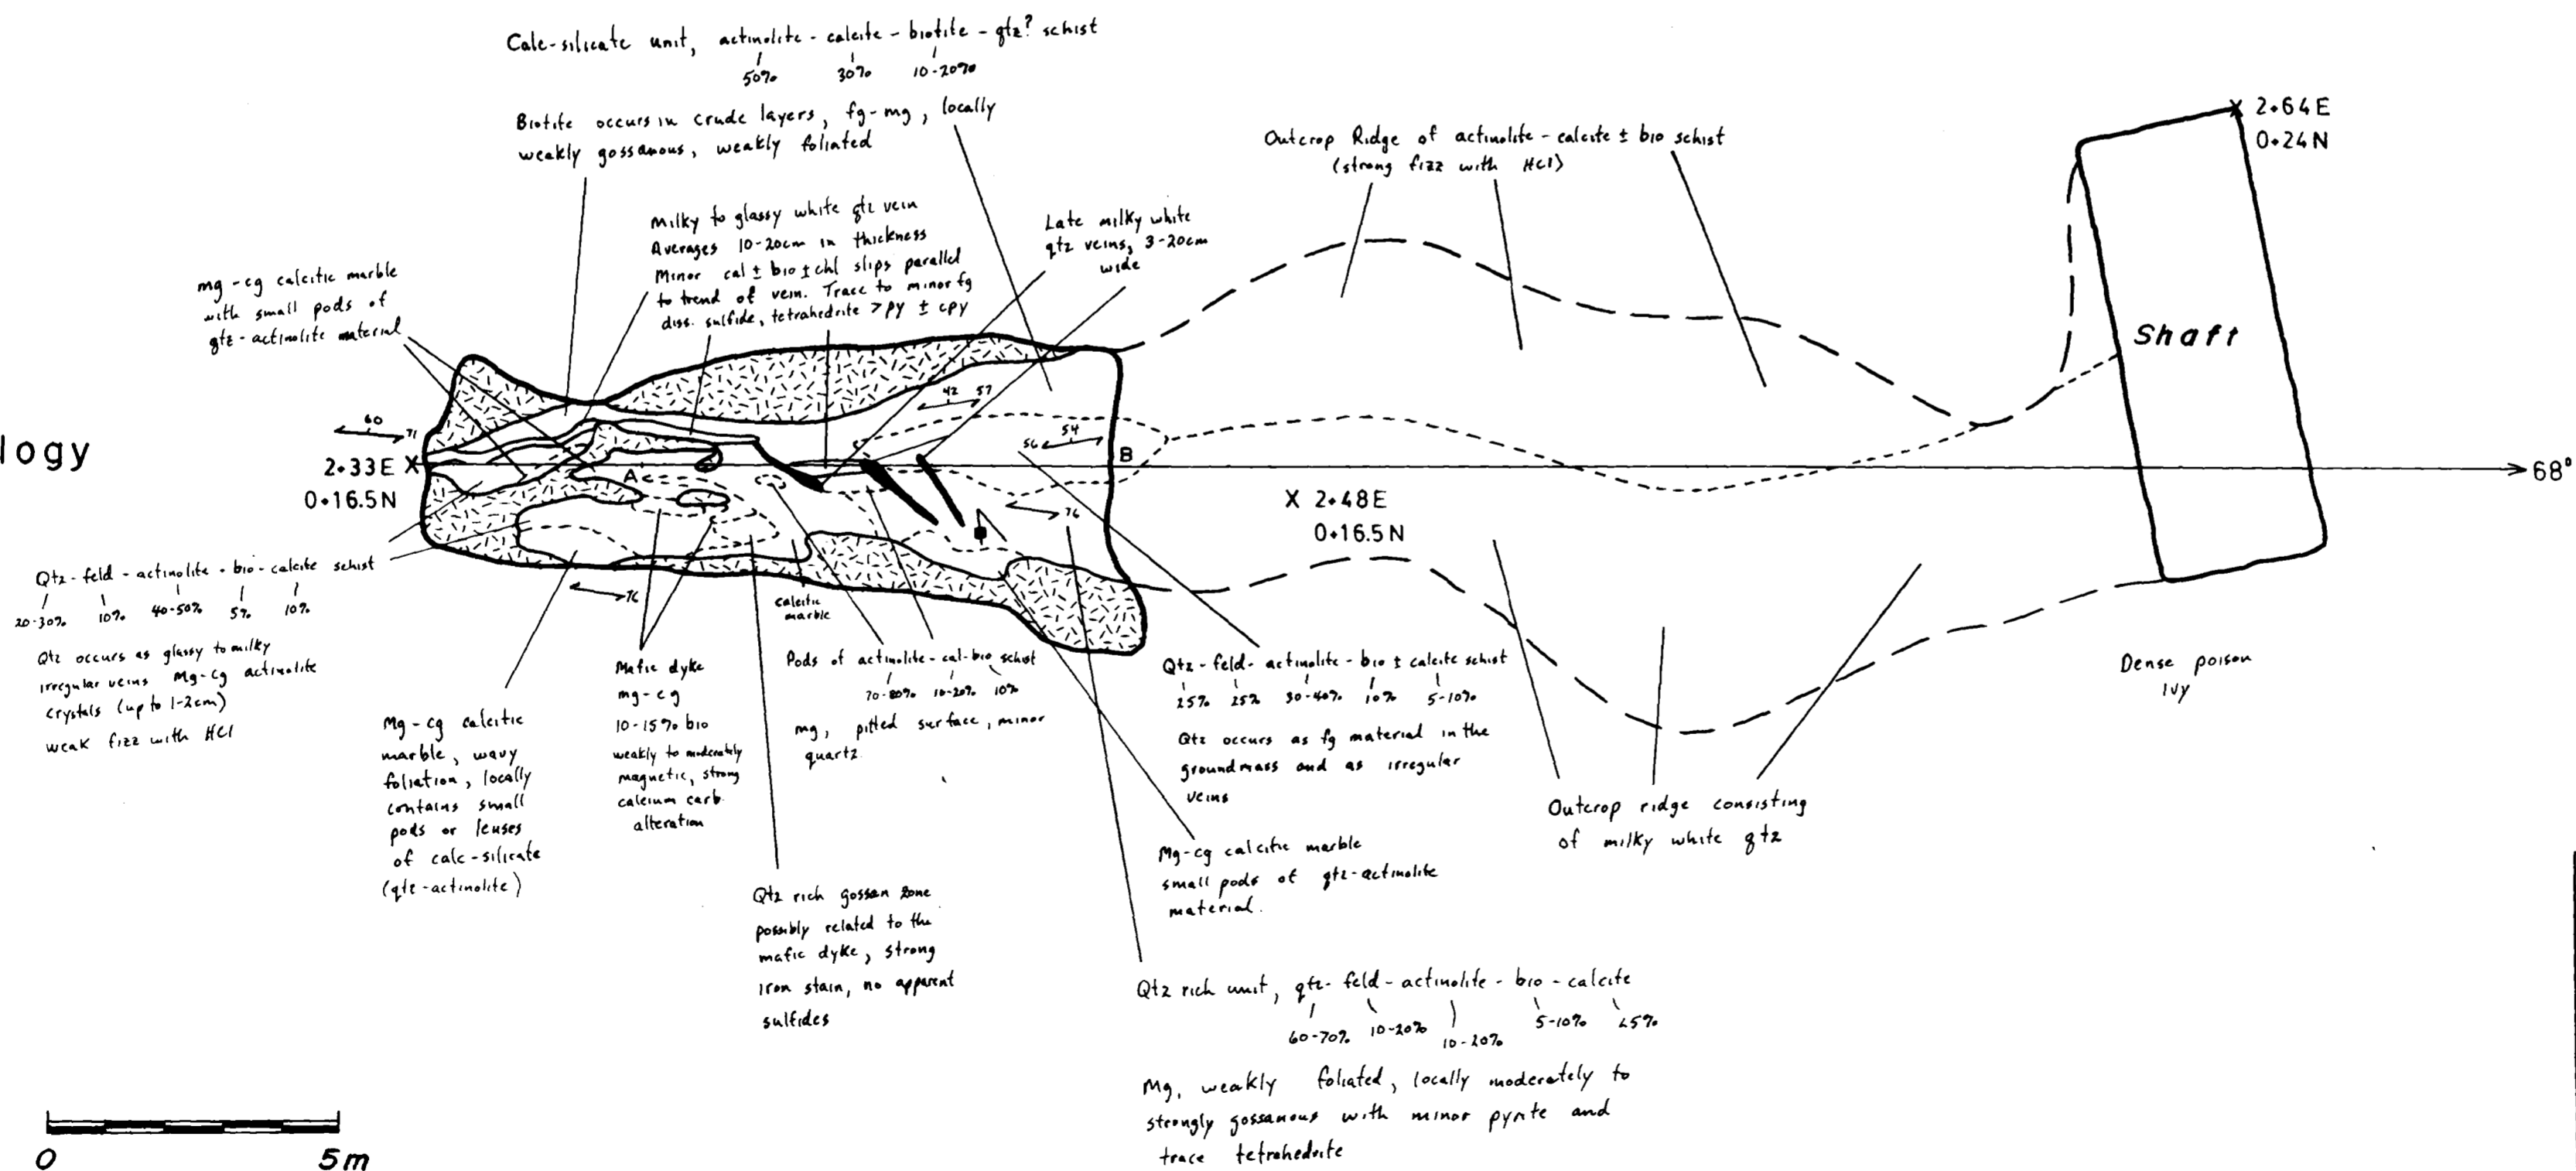 Calc-silicate unit, actinolite - calcite - biotite - qtz? schist
50% 30% 10-20%
Biotite occurs in crude layers, fg-mg, locally
weakly gossanous, weakly foliated
Outcrop Ridge of actinolite - calcite ± bio schist
(strong fizz with HCl)
2+64E
0+24N
Shaft
Milky to glassy white qtz vein
Averages 10-20cm in thickness
Minor cal ± bio ± chl slips parallel
to trend of vein. Trace to minor fg
diss. sulfide, tetrahedrite > py ± cpy
Late milky white
qtz veins, 3-20cm
wide
mg-cg calcitic marble
with small pods of
qtz-actinolite material
logy
60
71
42 57
54
56
76
76
A
B
2+33E X
0+16.5N
X 2+48E
0+16.5N
68°
Qtz-feld-actinolite-bio-calcite schist
20-30% 10% 40-50% 5% 10%
Qtz occurs as glassy to milky
irregular veins Mg-cg actinolite
crystals (up to 1-2cm)
weak fizz with HCl
Mg-cg calcitic
marble, wavy
foliation, locally
contains small
pods or lenses
of calc-silicate
(qtz-actinolite)
Mafic dyke
mg-cg
10-15% bio
weakly to moderately
magnetic, strong
calcium carb.
alteration
calcitic
marble
Pods of actinolite-cal-bio schist
70-80% 10-20% 10%
mg, pitted surface, minor
quartz.
Qtz rich gossan zone
possibly related to the
mafic dyke, strong
iron stain, no apparent
sulfides
Qtz-feld-actinolite-bio ± calcite schist
25% 25% 30-40% 10% 5-10%
Qtz occurs as fg material in the
groundmass and as irregular
veins
Mg-cg calcitic marble
small pods of qtz-actinolite
material.
Outcrop ridge consisting
of milky white qtz
Dense poison
ivy
Qtz rich unit, qtz-feld-actinolite-bio-calcite
60-70% 10-20% 10-20% 5-10% <5%
Mg, weakly foliated, locally moderately to
strongly gossanous with minor pyrite and
trace tetrahedrite
0 5m